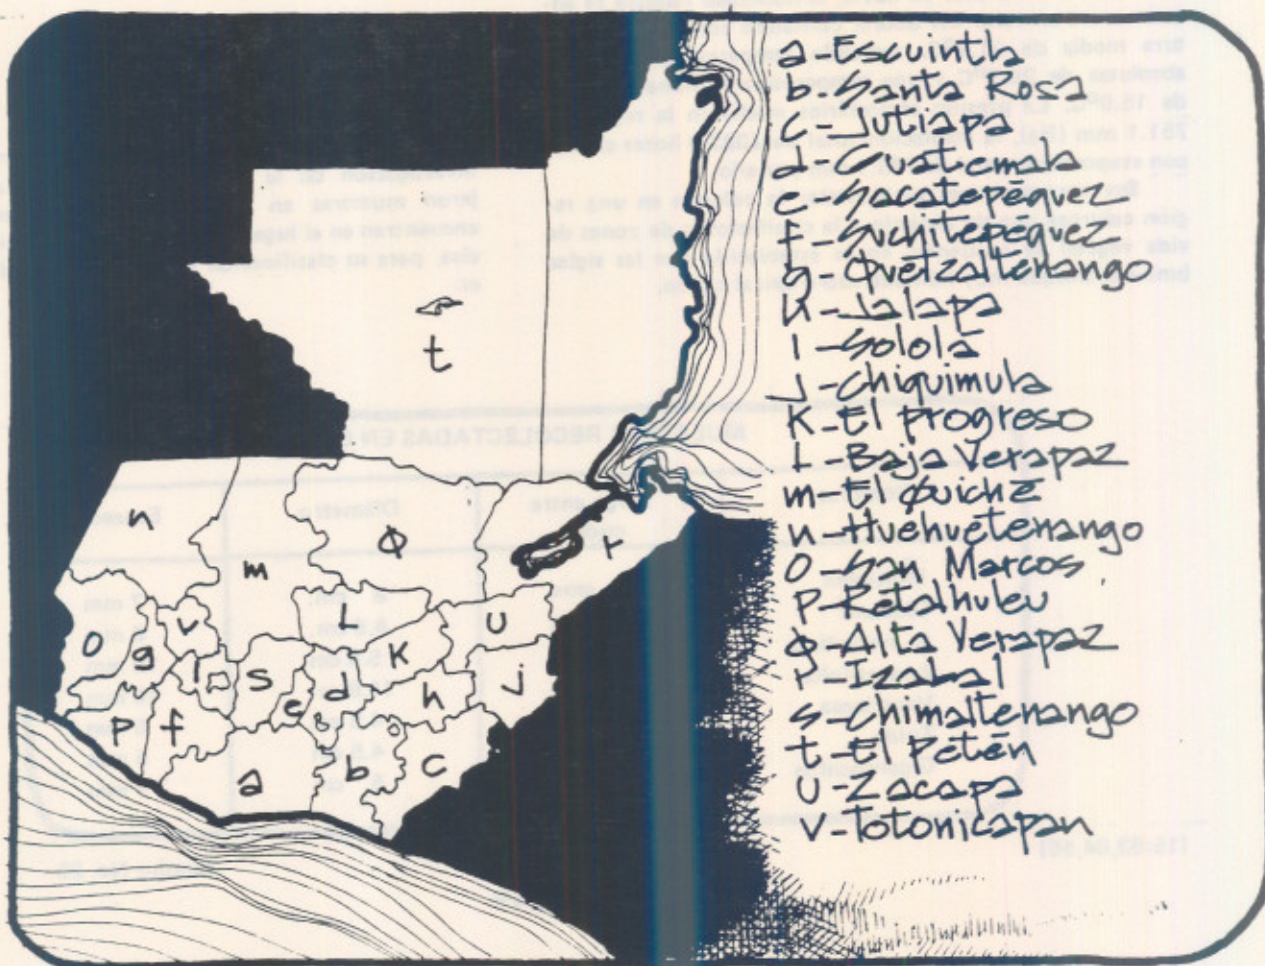 a-Escuintla
b-Santa Rosa
c-Jutiapa
d-Guatemala
e-Sacatepéquez
f-Suchitepéquez
g-Quetzaltenango
h-Jalapa
i-Sololá
j-Chiquimula
K-El Progreso
L-Baja Verapaz
m-El Quiché
n-Huehuetenango
O-San Marcos
P-Retalhuleu
Q-Alta Verapaz
r-Izabal
s-Chimaltenango
t-El Petén
U-Zacapa
v-Totonicapan
t
n
m
Q
r
v
L
U
O
g
i
s
K
j
e
d
h
P
f
a
b
c